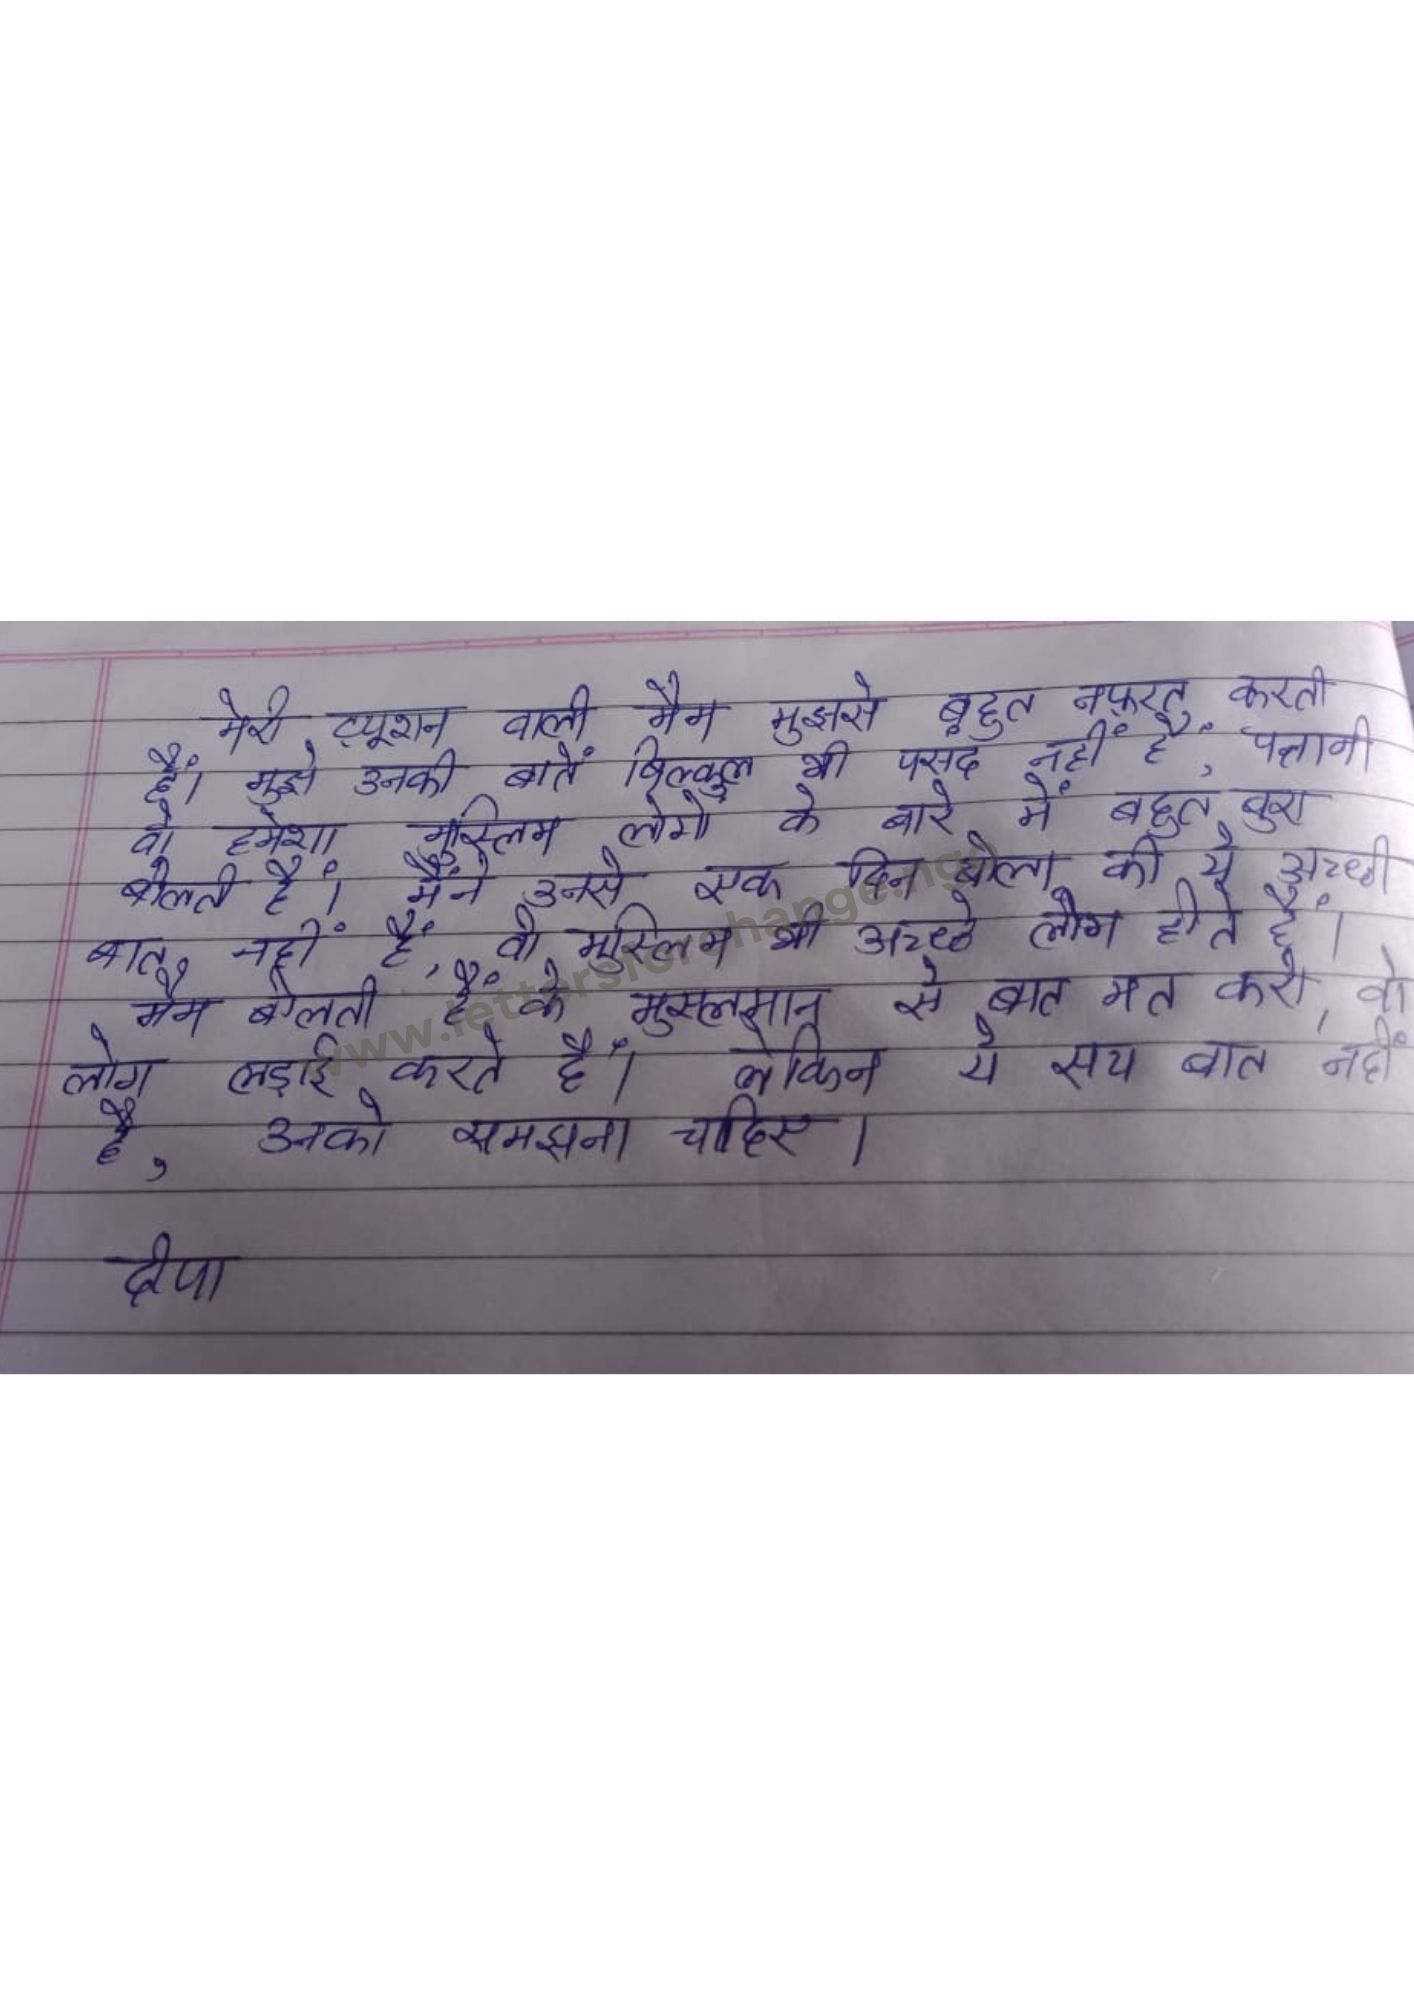 मेरी ट्यूशन वाली मैम मुझसे बहुत नफ़रत करती
हैं। मुझे उनकी बातें बिल्कुल भी पसंद नहीं हैं, पत्तानी
वो हमेशा मुस्लिम लोगो के बारे में बहुत बुरा
बोलती हैं। मैंने उनसे एक दिन बोला की ये अच्छी
बात नहीं हैं, वो मुस्लिम भी अच्छे लोग होते हैं।
मैम बोलती हैं के मुसलमान से बात मत करो, वो
लोग लड़ाई करते हैं। लेकिन ये सच बात नहीं
है, उनको समझना चाहिए।
दीपा
www.lettersforchange.ngo